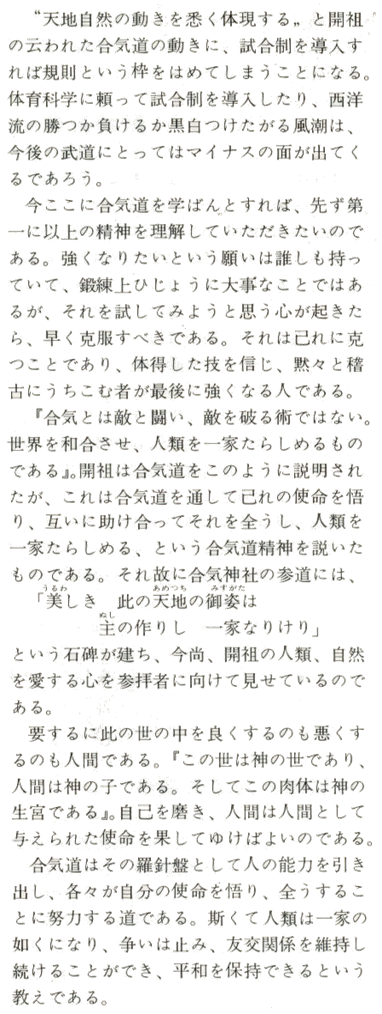 〝天地自然の動きを悉く体現する〟と開祖
の云われた合気道の動きに、試合制を導入す
れば規則という枠をはめてしまうことになる。
体育科学に頼って試合制を導入したり、西洋
流の勝つか負けるか黒白つけたがる風潮は、
今後の武道にとってはマイナスの面が出てく
るであろう。
　今ここに合気道を学ばんとすれば、先ず第
一に以上の精神を理解していただきたいので
ある。強くなりたいという願いは誰しも持っ
ていて、鍛練上ひじょうに大事なことではあ
るが、それを試してみようと思う心が起きた
ら、早く克服すべきである。それは己れに克
つことであり、体得した技を信じ、黙々と稽
古にうちこむ者が最後に強くなる人である。
　『合気とは敵と闘い、敵を破る術ではない。
世界を和合させ、人類を一家たらしめるもの
である』。開祖は合気道をこのように説明され
たが、これは合気道を通して己れの使命を悟
り、互いに助け合ってそれを全うし、人類を
一家たらしめる、という合気道精神を説いた
ものである。それ故に合気神社の参道には、
うるわ　あめつち　みすがた
「美しき　此の天地の御姿は
ぬし
主の作りし　一家なりけり」
という石碑が建ち、今尚、開祖の人類、自然
を愛する心を参拝者に向けて見せているので
ある。
　要するに此の世の中を良くするのも悪くす
るのも人間である。『この世は神の世であり、
人間は神の子である。そしてこの肉体は神の
生宮である』。自己を磨き、人間は人間として
与えられた使命を果してゆけばよいのである。
　合気道はその羅針盤として人の能力を引き
出し、各々が自分の使命を悟り、全うするこ
とに努力する道である。斯くて人類は一家の
如くになり、争いは止み、友交関係を維持し
続けることができ、平和を保持できるという
教えである。